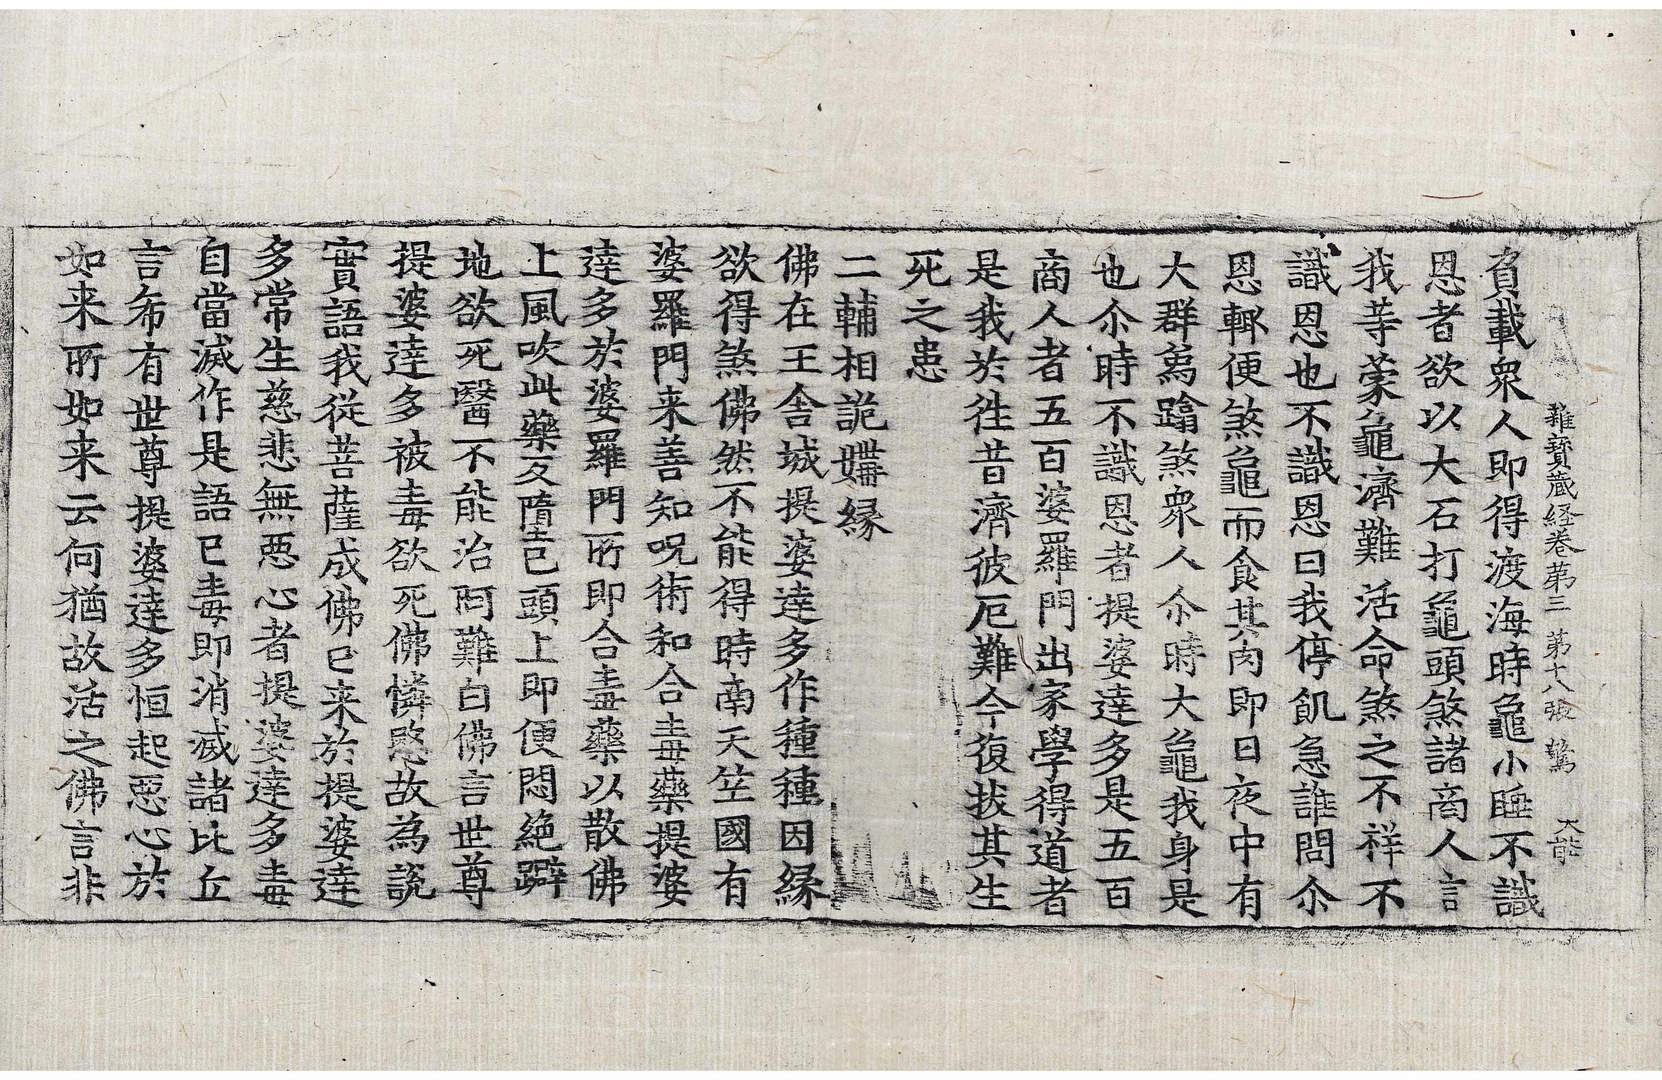 雜寶蔵経巻苐三 苐十八張 驚 大能
負載衆人即得渡海時龜小睡不識
恩者欲以大石打龜頭煞諸商人言
我䓁蒙龜濟難活命煞之不祥不
識恩也不識恩曰我停飢急誰問尒
恩輙便煞龜而食其肉即日夜中有
大群象蹹煞衆人尒時大龜我身是
也尒時不識恩者提婆達多是五百
商人者五百婆羅門出家學得道者
是我於徃昔濟彼厄難今復拔其生
死之患
二輔相詭媾縁
佛在王舎城提婆達多作種種因縁
欲得煞佛然不能得時南天竺國有
婆羅門来善知呪術和合毒藥提婆
達多於婆羅門所即合毒藥以散佛
上風吹此藥反墮己頭上即便悶絶躃
地欲死醫不能治阿難白佛言世尊
提婆達多被毒欲死佛憐愍故為説
實語我從菩薩成佛已来於提婆達
多常生慈悲無惡心者提婆達多毒
自當滅作是語已毒即消滅諸比丘
言希有世尊提婆達多恒起惡心於
如来所如来云何猶故活之佛言非